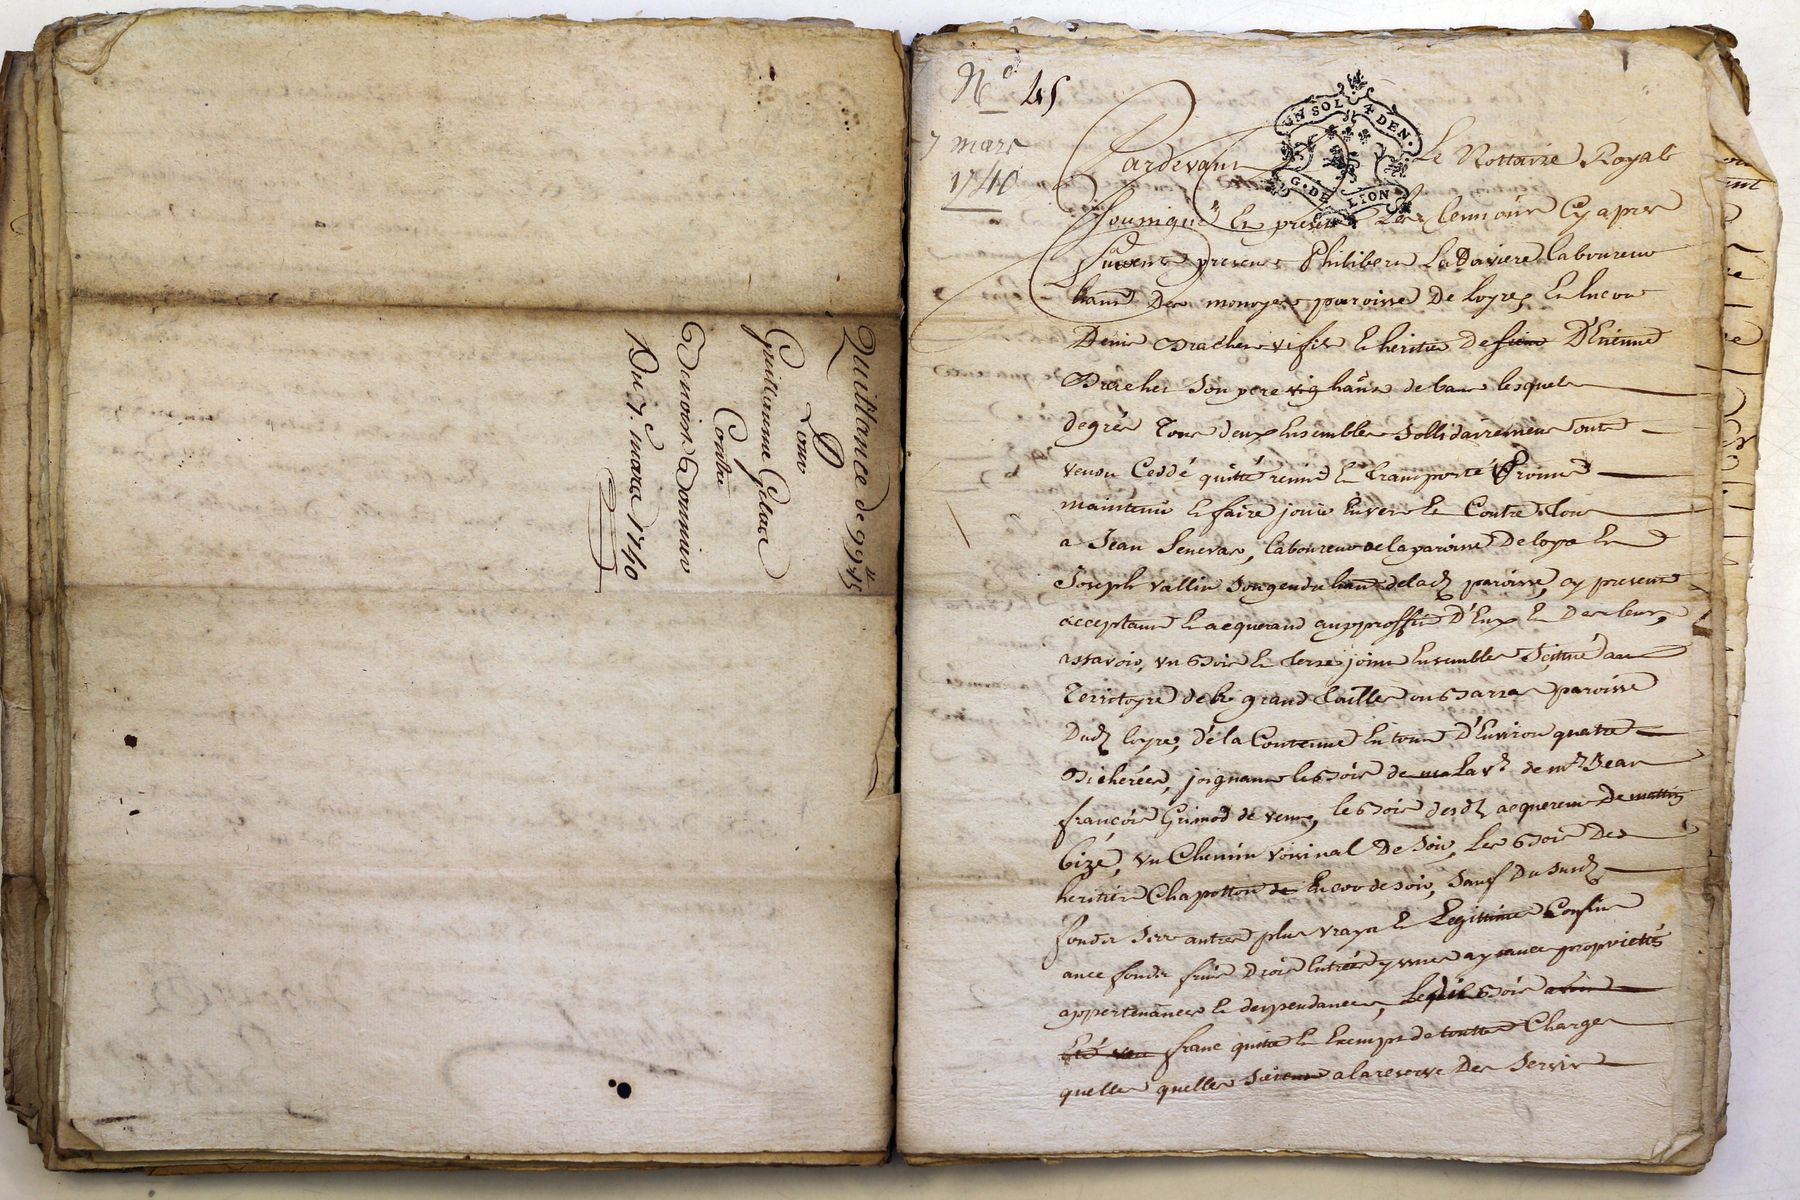 Quittance de 99tt 15
Pour
Guillaume Gelas
Contre
Benoist
Du 7 mars 1740
No 45
7 mars
1740
UN SOL 4 DEN.
G. DE LION
Pardevant Le Nottaire Royal
Soussigné Et presents Les temoins Cy apres
presents Philibert laboureur
parroisse De Loyre, Et Encore
Denis Bracher fils Et heritier De D'Etienne
Bracher Son pere de lesquels
degrés Tous deux Ensembles Sollidairement ont
vendu Ceddé quitté remis Et Transporté Promis
maintenir Et faire jouir Envers Et Contre Tous
a Jean laboureur de la paroisse De Et
Joseph Vallin Son gendre de lad. paroisse, cy present
acceptant Et acquerand au proffit D'Eux Et Des leurs,
assavoir, un Bois Et Terre joint Ensembles Scitué au
Territoyre de grand Taille ou Barra paroisse
Dud. Loyre, de la Contenue En tout D'Environ quatre
Bicherées, joignant le Bois de de Mr Jean
françois Grimod de le Bois desd. acquereurs De mattin
bize, un Chemin voisinal De Soir, Les Bois Des
heritiers Chapotton Encore de soir, Sauf Du Susd.
fonds Ses autres plus vrays Et Legittimes Confins
avec fonds fruits Droits Entrées proprietés
appertenances Et deppendances, Bois
franc quitte Et Exempt de touttes Charges
quelles quelles Soient a la reserve Des Servis